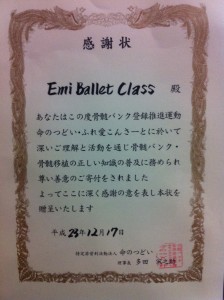 感謝状
Emi Ballet Class 殿
あなたはこの度骨髄バンク登録推進運動
命のつどい・ふれ愛こんさーとに於いて
深いご理解と活動を通じ骨髄バンク・
骨髄移植の正しい知識の普及に務められ
尊い善意のご寄付をされました
よってここに深く感謝の意を表し本状を
贈呈いたします
平成23年12月17日
特定非営利活動法人 命のつどい
理事長 多田